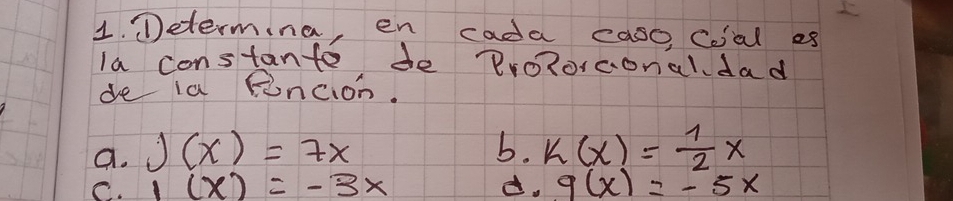 1. Determina, en cada caso, cúal es
la constante de Proporcionalidad
de la función.
a. J(x) = 7x b. K(x) = 1/2 x
c. (x) = -3x d. g(x) = -5x